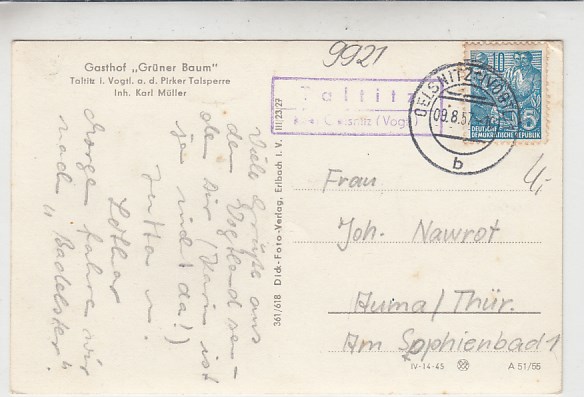 9921
Gasthof „Grüner Baum"
Taltitz i. Vogtl. a. d. Pirker Talsperre
Inh. Karl Müller
Taltitz
Oelsnitz (Vogtl.
OELSNITZ (VOGTL
09.8.57
b
10
5
DEUTSCHE
DEMOKRATISCHE REPUBLIK
Viele Grüße aus
dem Vogtland sen-
den Dir (Karin ist
ja mit da!)
Jutta u.
Lothar
Morgen fahren wir
nach „Badelster"
361/618 Dick-Foto-Verlag, Erlbach i. V. III/23/27
4,-
Frau
Joh. Nawrot
Auma/Thür.
Am Sophienbad 1
IV-14-45
A 51/55